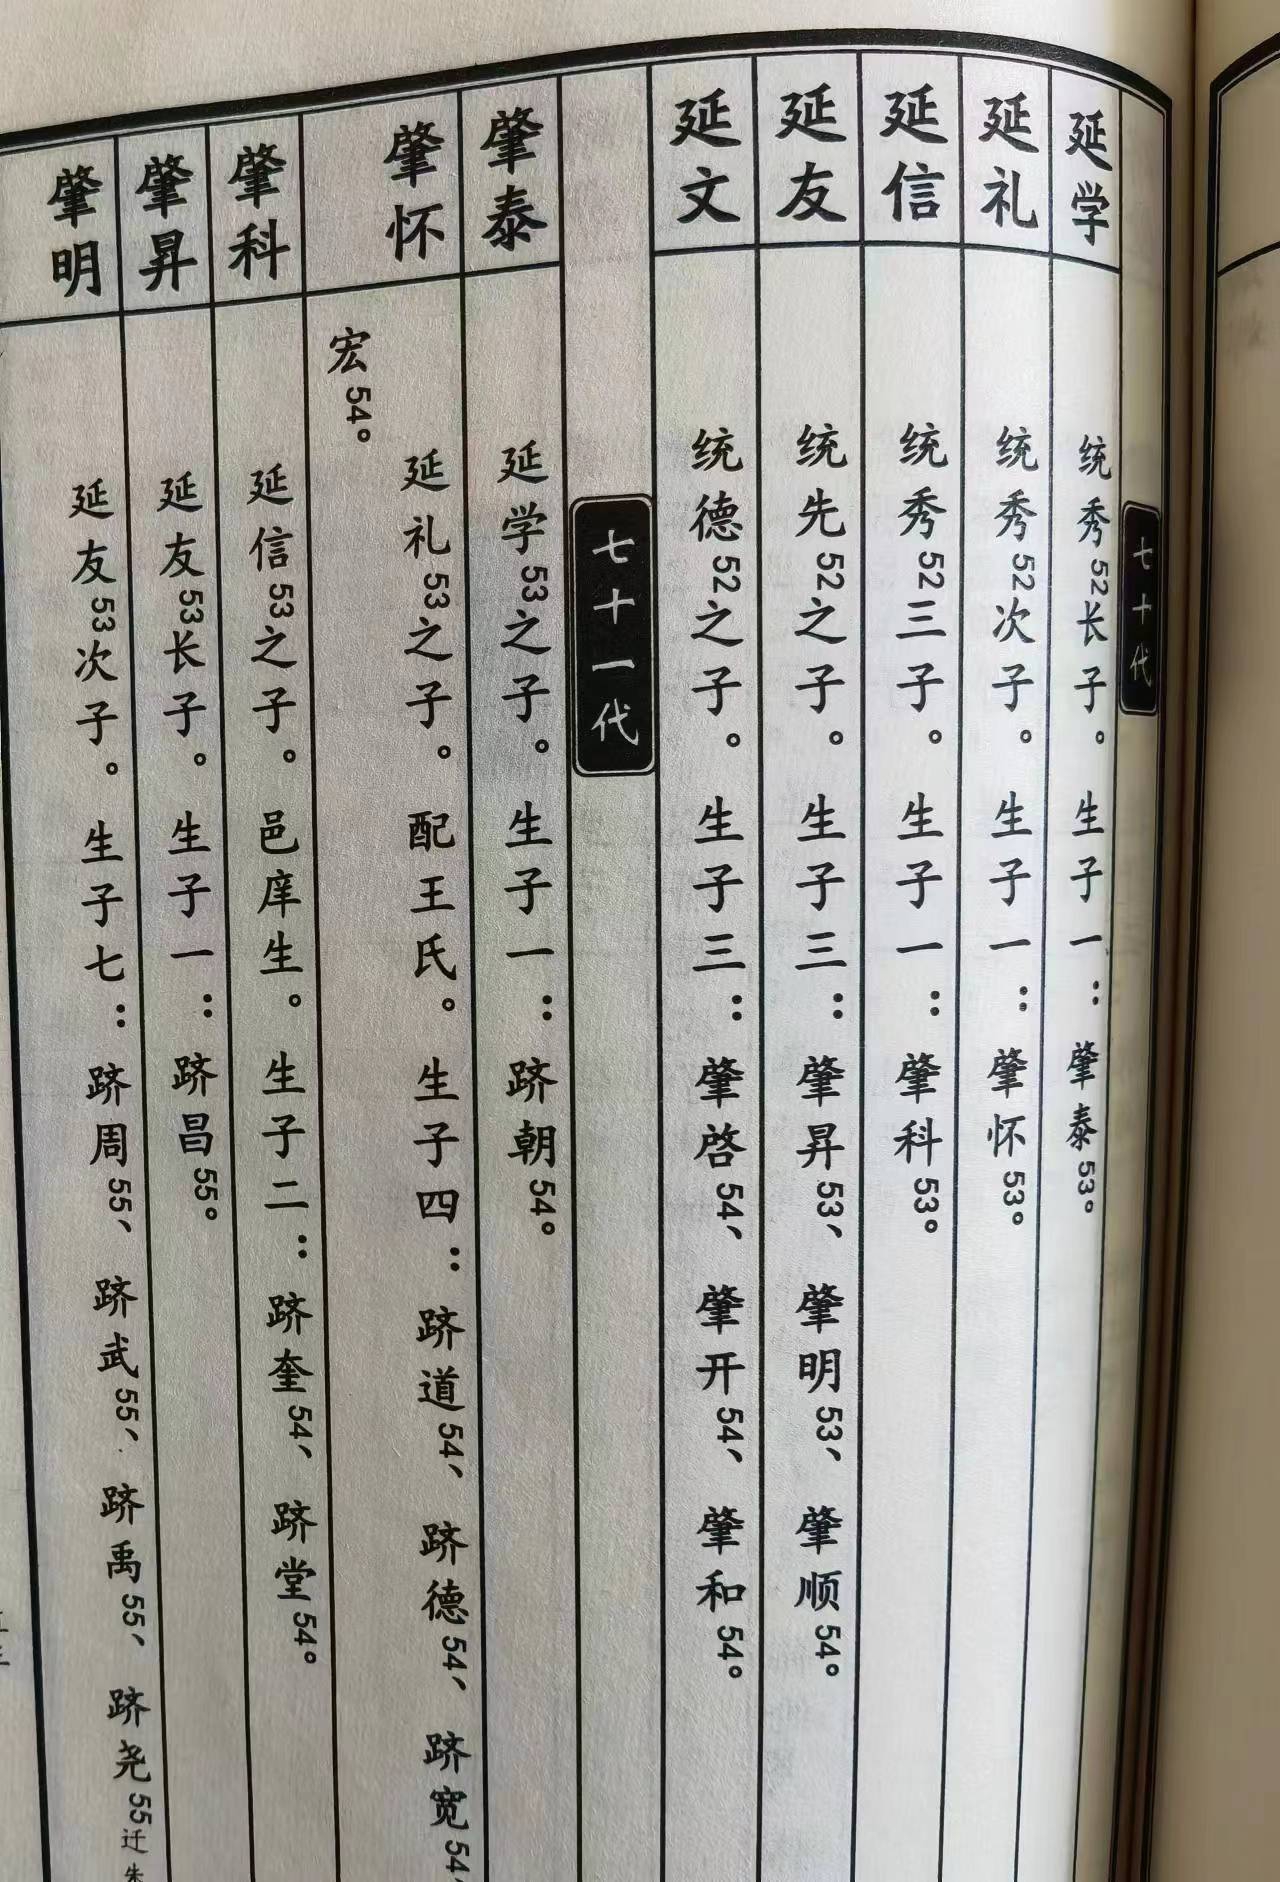 七十代
延学 统秀52长子。生子一：肇泰53。
延礼 统秀52次子。生子一：肇怀53。
延信 统秀52三子。生子一：肇科53。
延友 统先52之子。生子三：肇昇53、肇明53、肇顺54。
延文 统德52之子。生子三：肇啓54、肇开54、肇和54。
七十一代
肇泰 延学53之子。生子一：跻朝54。
肇怀 延礼53之子。配王氏。生子四：跻道54、跻德54、跻宽54、
宏54。
肇科 延信53之子。邑庠生。生子二：跻奎54、跻堂54。
肇昇 延友53长子。生子一：跻昌55。
肇明 延友53次子。生子七：跻周55、跻武55、跻禹55、跻尧55迁朱